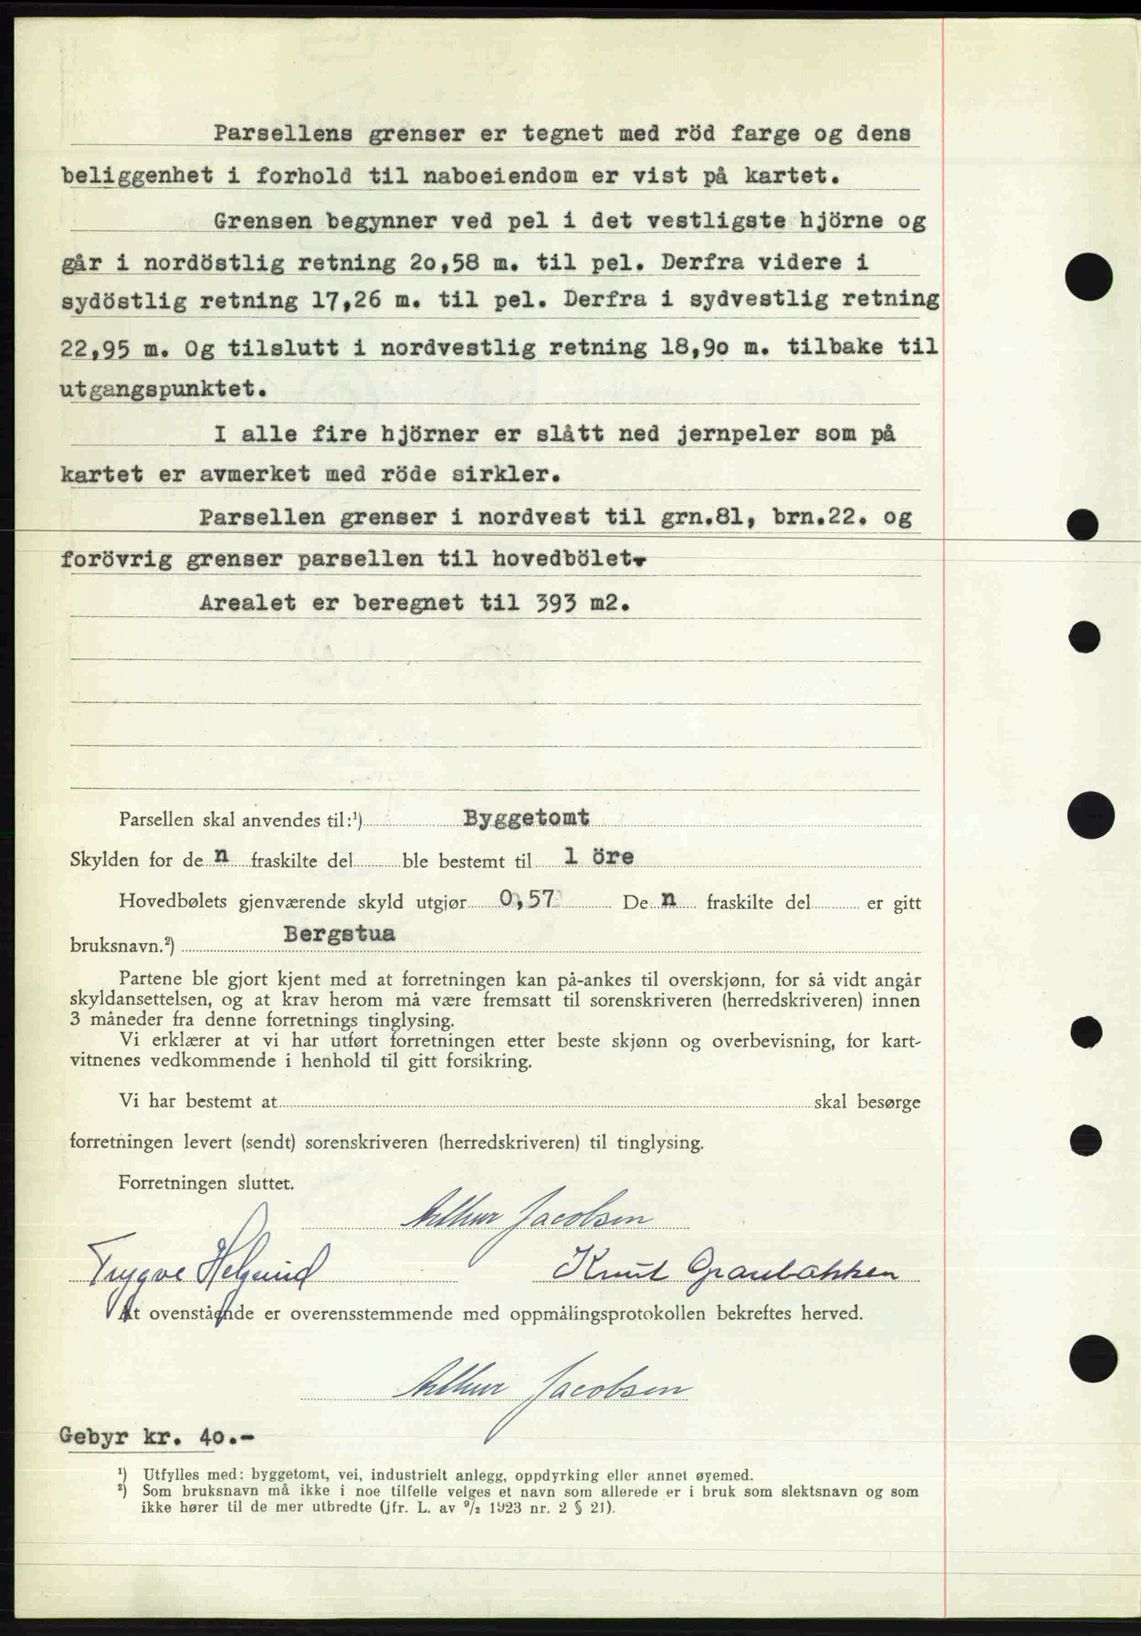 Parsellens grenser er tegnet med röd farge og dens
beliggenhet i forhold til naboeiendom er vist på kartet.
Grensen begynner ved pel i det vestligste hjörne og
går i nordöstlig retning 2o,58 m. til pel. Derfra videre i
sydöstlig retning 17,26 m. til pel. Derfra i sydvestlig retning
22,95 m. Og tilslutt i nordvestlig retning 18,9o m. tilbake til
utgangspunktet.
I alle fire hjörner er slått ned jernpeler som på
kartet er avmerket med röde sirkler.
Parsellen grenser i nordvest til grn.81, brn.22. og
forövrig grenser parsellen til hovedbölet.
Arealet er beregnet til 393 m2.
Parsellen skal anvendes til:¹) Byggetomt
Skylden for de n fraskilte del ble bestemt til 1 öre
Hovedbølets gjenværende skyld utgjør 0,57 De n fraskilte del er gitt
bruksnavn.²) Bergstua
Partene ble gjort kjent med at forretningen kan på-ankes til overskjønn, for så vidt angår
skyldansettelsen, og at krav herom må være fremsatt til sorenskriveren (herredskriveren) innen
3 måneder fra denne forretnings tinglysing.
Vi erklærer at vi har utført forretningen etter beste skjønn og overbevisning, for kart-
vitnenes vedkommende i henhold til gitt forsikring.
Vi har bestemt at skal besørge
forretningen levert (sendt) sorenskriveren (herredskriveren) til tinglysing.
Forretningen sluttet.
Arthur Jacobsen
Trygve Helgerud Knut Graubakken
At ovenstående er overensstemmende med oppmålingsprotokollen bekreftes herved.
Arthur Jacobsen
Gebyr kr. 4o.-
¹) Utfylles med: byggetomt, vei, industrielt anlegg, oppdyrking eller annet øyemed.
²) Som bruksnavn må ikke i noe tilfelle velges et navn som allerede er i bruk som slektsnavn og som
ikke hører til de mer utbredte (jfr. L. av ⁹/₂ 1923 nr. 2 § 21).